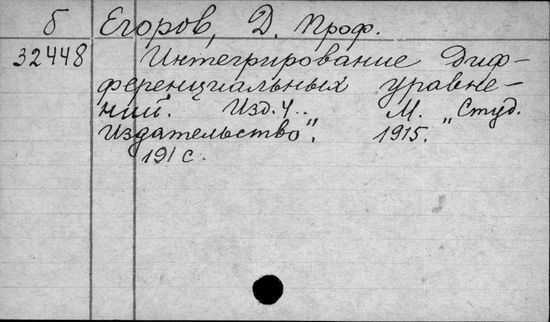 б Егоров, Д. Проф.
32448 Интегрирование диф-
ференциальных уравне-
ний. Изд. 4.. М. „Студ.
Издательство". 1915.
191 с.